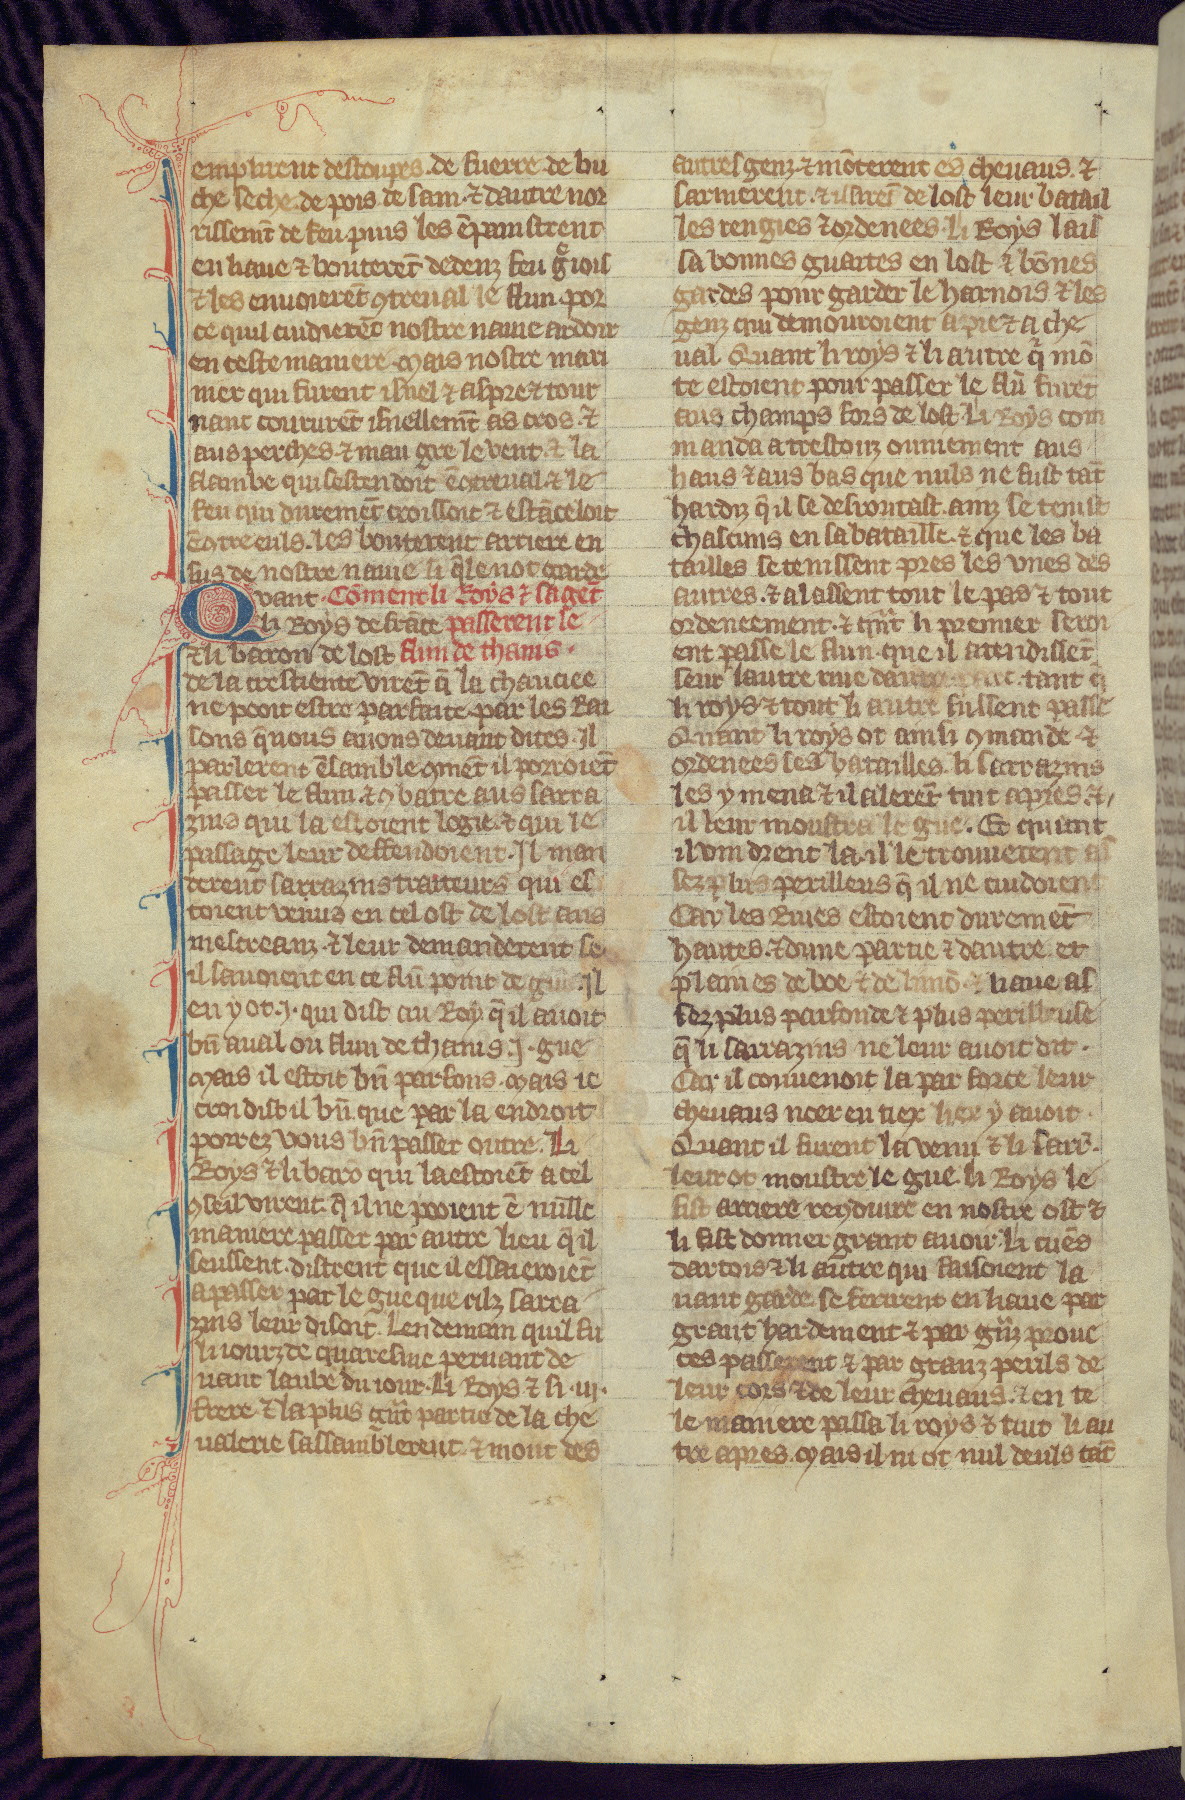 emplirent destoupes. de fuerre. de bu
che seche. de pois. de sain. ⁊ dautre nor
rissemt̄ de feu. puis les ēpainstrent
en liaue ⁊ bouterēt dedenz feu g̃iois
⁊ les enuoierēt ꝯtreual le flun. por
ce quil cuidierēt nostre nauie ardoir
en ceste maniere. Mais nostre mari
nier qui furent isnel ⁊ aspre ⁊ tour
nant coururēt isnellemt̄ as cros. ⁊
aus perches. ⁊ mau gre le vent. ⁊ la
flambe qui sestendoit ꝯtreual. ⁊ le
feu qui duremēt croissoit ⁊ estāceloit
ēcōtre euls. les bouterent arriere en
sus de nostre nauie si q̄ le not garde
Quant. Cōment li Roys ⁊ sa gēt
li Roys de frāce passerent le
⁊ li baron de lost flun de thanis.
de la crestiente virēt q̄ la chauciee
ne pooit estre parfaite. par les Rai
sons q̄ nous auons deuant dites. Il
parlerent ēsamble ꝯmēt il porroiēt
passer le flun. ⁊ ꝯbatre aus sarra
zins qui la estoient logie. ⁊ qui le
passage leur deffendoient. Il man
derent sarrazins traiteurs qui es
toient venus en cel ost de lost aus
mescreanz. ⁊ leur demanderent se
il sauoient en ce flū point de gue. Il
en y ot .j. qui dist au Roy q̄ il auoit
bn̄ aual ou flun de thanis .j. gue
Mais il estoit bn̄ parfons. Mais ie
croi dist il bn̄. que par la endroit
porrez vous bn̄ passer outre. Li
Roys ⁊ li baro qui la estoiēt a cel
ꝯseil virent. q̄ il ne pooient ē nulle
maniere passer par autre lieu q̄ il
seussent. distrent que il essaieroiēt
a passer par le gue que cilz sarra
zins leur disoit. Lendemain quil fu
li iourz de quaresme pernant de
uant laube du iour. Li Roys ⁊ si .iij.
frere ⁊ la plus gūt partie de la che
ualerie sassamblerent. ⁊ mont des
autres genz. ⁊ mōterent es cheuaus. ⁊
sarmerent. ⁊ issirēt de lost leur batail
les rengies ⁊ ordenees. li Roys lais
sa bonnes guaites en lost ⁊ bōnes
gardes pour garder le harnois ⁊ les
genz qui demouroient a pie ⁊ a che
ual Quant li roys ⁊ li autre q̄ mō
te estoient pour passer le flū furēt
aus champs fors de lost. li Roys com
manda a trestouz ouniement aus
haus ⁊ aus bas que nuls ne fust tāt
hardiz q̄ il se desroutast. ainz se tenist
chascuns en sa bataille. ⁊ que les ba
tailles se tenissent pres les vnes des
autres. ⁊ alassent tout le pas ⁊ tout
ordeneement. ⁊ qn̄t li premier seroi
ent passe le flun. que il atendissēt
seur lautre riue tant q̄
li roys ⁊ tout li autre fussent passe
Quant li roys ot ainsi ꝯmande ⁊
ordenees ses batailles. li sarrazins
les y mena ⁊ il alerēt tuit apres. ⁊
il leur moustra le gue. Et quant
il vindrent la. il le trouuerent as
sez plus perilleus q̄ il ne cuidoient
Car les Riues estoient duremēt
hautes. ⁊ dune partie ⁊ dautre et
plaines de boe ⁊ de limō. ⁊ liaue as
sez plus parfonde ⁊ plus perilleuse
q̄ li sarrazins ne leur auoit dit.
Car il conuenoit la par force leur
cheuaus noer en tiex liex y auoit.
Quant il furent la venu ⁊ li sarr̄.
leur ot moustre le gue. li Roys le
fist arriere reꝯduire en nostre ost ⁊
li fist donner grant auoir. Li cuēs
dartois ⁊ li autre qui faisoient la
uant garde. se ferirent en liaue par
grant hardement ⁊ par gn̄z proue
ces passerent ⁊ par granz perils de
leur cors ⁊ de leur cheuaus. ⁊ en te
le maniere passa li roys ⁊ tuit li au
tre apres. Mais il ni ot nul deuls tāt